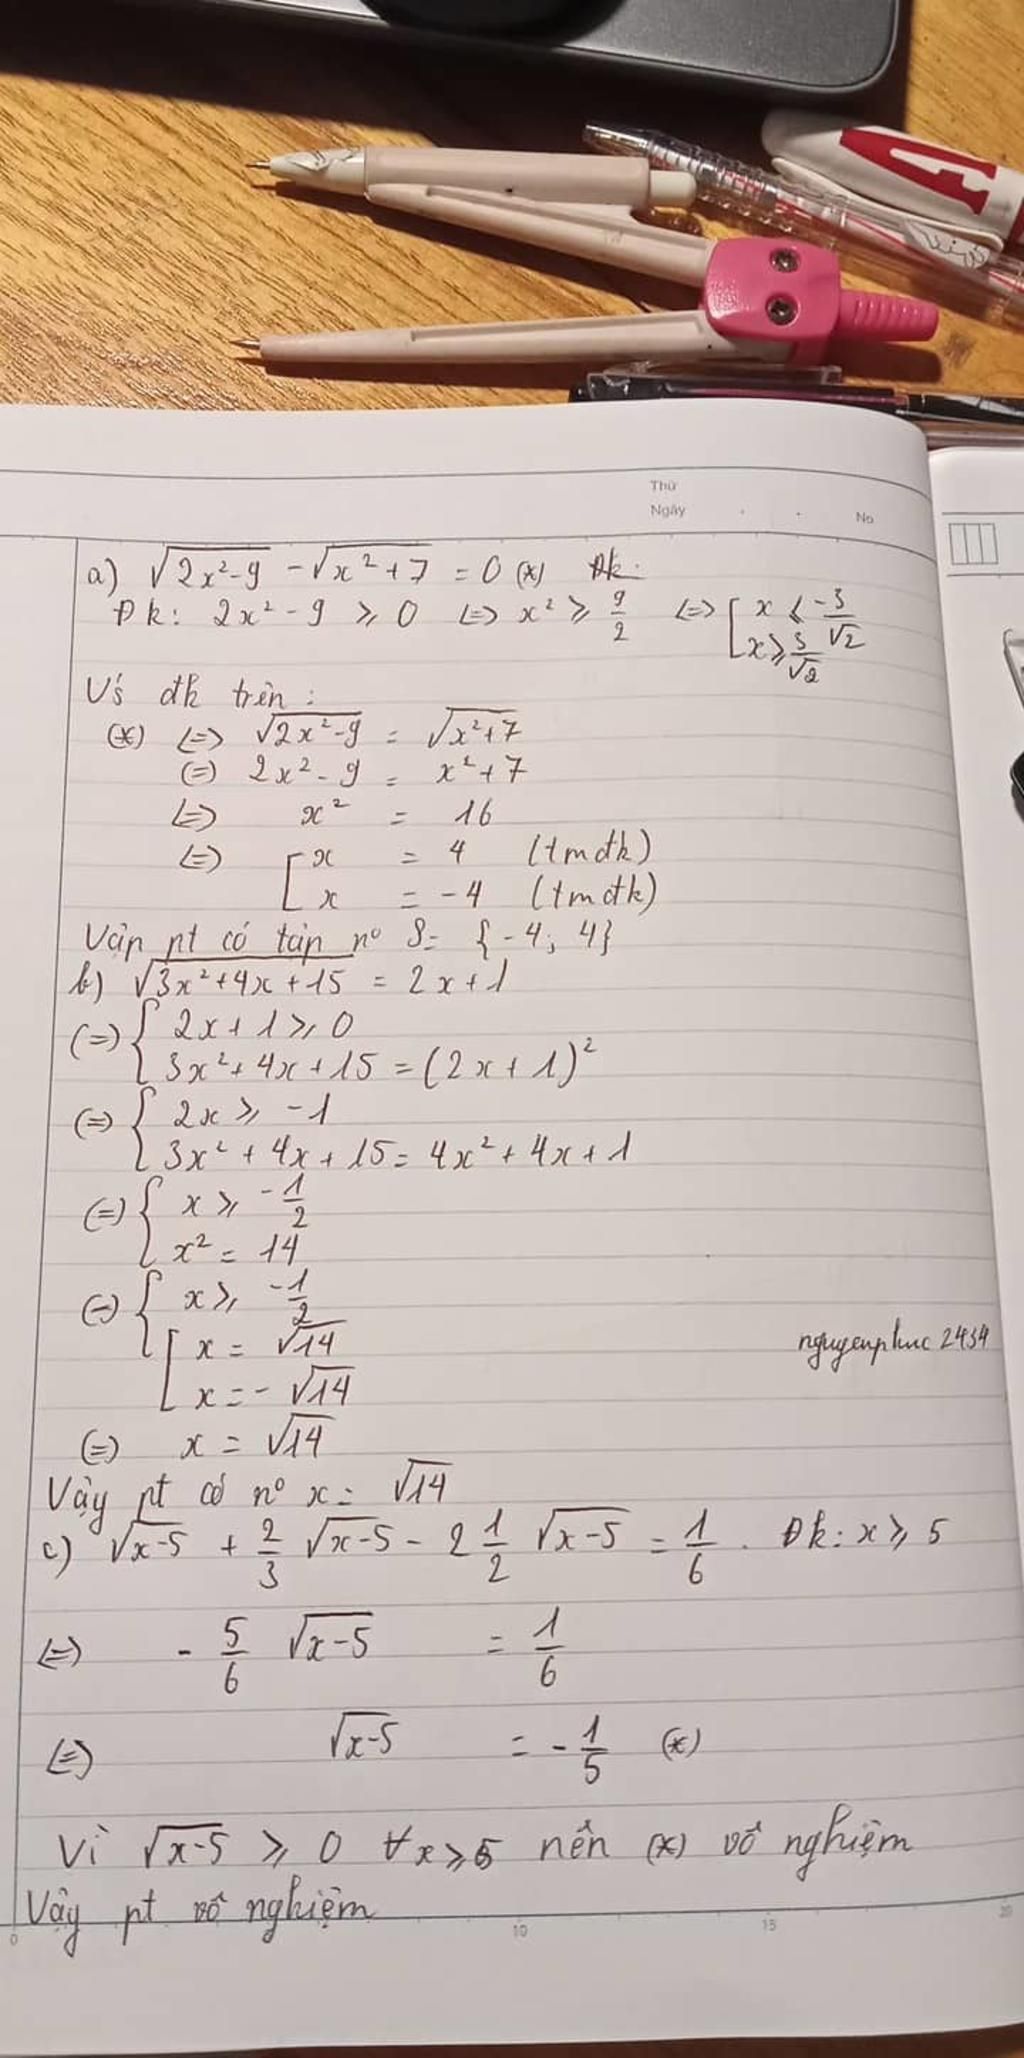 Thứ
Ngày . . No
a) √(2x²-9) - √(x²+7) = 0 (*) Đk:
Đk: 2x² - 9 ⩾ 0 <=> x² ⩾ 9/2 <=> [ x ⩽ -3/√2
x ⩾ 3/√2
Vs đk trên:
(*) <=> √(2x²-9) = √(x²+7)
(=) 2x² - 9 = x² + 7
<=> x² = 16
<=> [ x = 4 (tmđk)
x = -4 (tmđk)
Vậy pt có tập nº S = {-4; 4}
b) √(3x²+4x+15) = 2x+1
(=) { 2x + 1 ⩾ 0
3x² + 4x + 15 = (2x + 1)²
(=) { 2x ⩾ -1
3x² + 4x + 15 = 4x² + 4x + 1
(=) { x ⩾ -1/2
x² = 14
(=) { x ⩾ -1/2
[ x = √14
x = -√14
nguyenphuc 2434
(=) x = √14
Vậy pt có nº x = √14
c) √(x-5) + 2/3 √(x-5) - 2 1/2 √(x-5) = 1/6 . Đk: x ⩾ 5
<=> - 5/6 √(x-5) = 1/6
<=> √(x-5) = - 1/5 (*)
Vì √(x-5) ⩾ 0 ∀x⩾5 nên (*) vô nghiệm
Vậy pt vô nghiệm
0 10 15 20